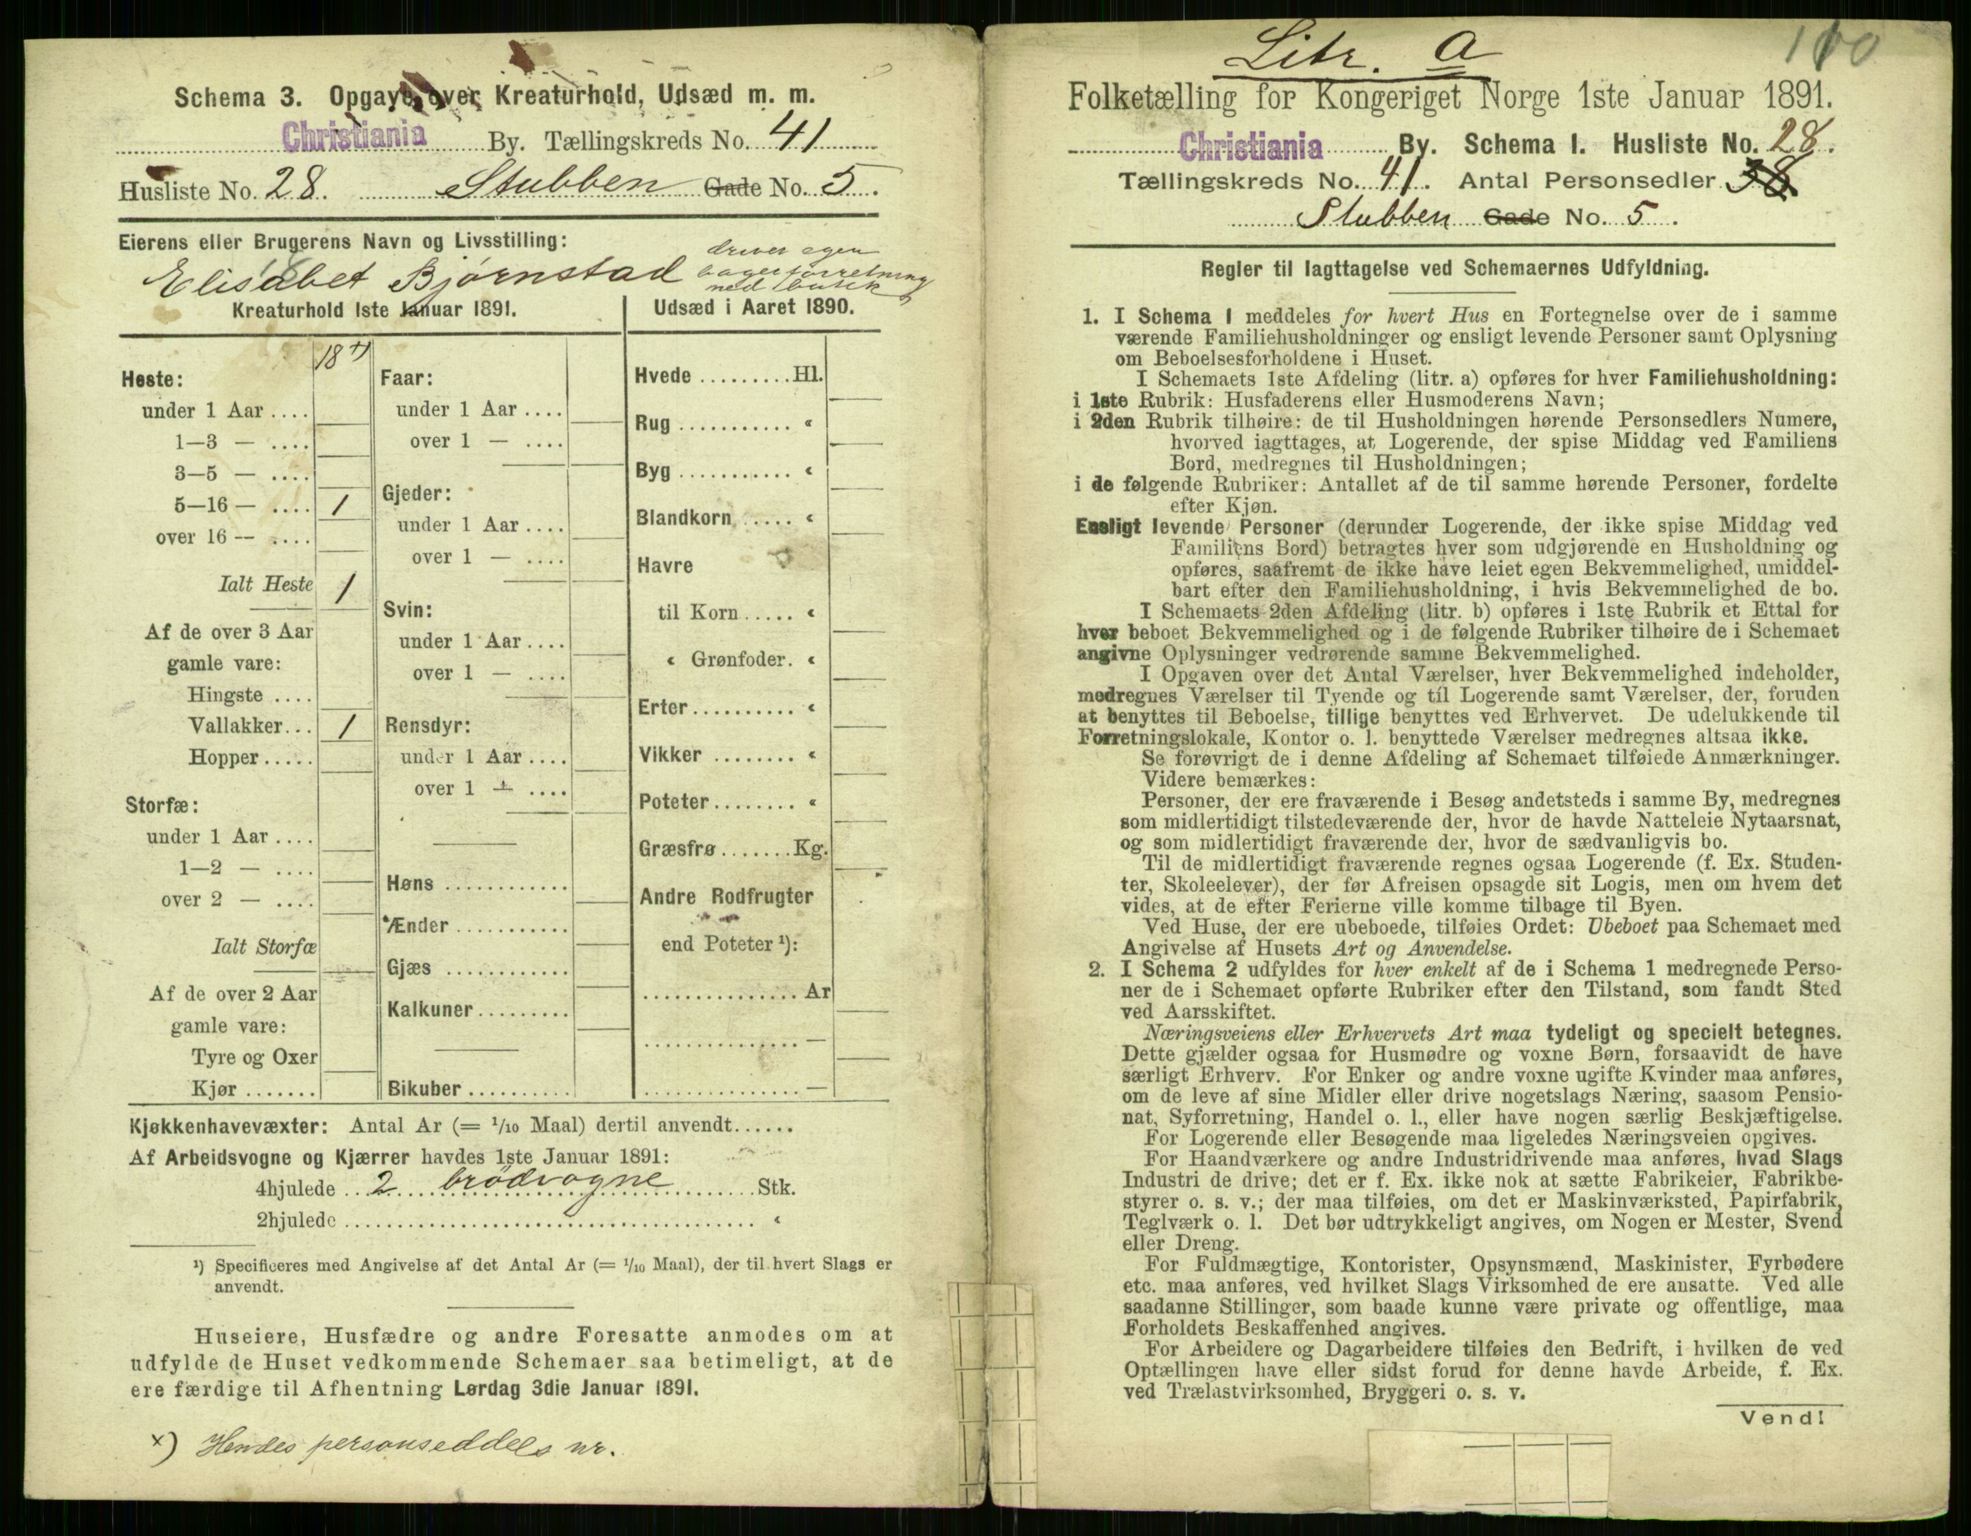 Schema 3. Opgave over Kreaturhold, Udsæd m. m.
Christiania By. Tællingskreds No. 41
Husliste No. 28. Stubben Gade No. 5.
Eierens eller Brugerens Navn og Livsstilling:
Elisabet Bjørnstad
driver egen
bagerforretning
med butik
Kreaturhold 1ste Januar 1891.
Udsæd i Aaret 1890.
18 x)
Heste:
under 1 Aar ....
1—3 — ....
3—5 — ....
5—16 — .... 1
over 16 — ....
Ialt Heste 1
Af de over 3 Aar
gamle vare:
Hingste ....
Vallakker... 1
Hopper .....
Storfæ:
under 1 Aar ....
1—2 — ....
over 2 — ....
Ialt Storfæ
Af de over 2 Aar
gamle vare:
Tyre og Oxer
Kjør .......
Faar:
under 1 Aar ....
over 1 — ....
Gjeder:
under 1 Aar ....
over 1 — ....
Svin:
under 1 Aar ....
over 1 — ....
Rensdyr:
under 1 Aar ....
over 1 — ....
Høns ............
Ænder ...........
Gjæs ............
Kalkuner.........
Bikuber ..........
Hvede .........Hl.
Rug ........... "
Byg ........... "
Blandkorn ..... "
Havre
til Korn ..... "
" Grønfoder. "
Erter.......... "
Vikker ........ "
Poteter........ "
Græsfrø .......Kg.
Andre Rodfrugter
end Poteter ¹):
............... Ar
............... —
............... —
Kjøkkenhavevæxter: Antal Ar (= 1/10 Maal) dertil anvendt......
Af Arbeidsvogne og Kjærrer havdes 1ste Januar 1891:
4hjulede .. 2 brödvogne ...... Stk.
2hjulede ........................ "
¹) Specificeres med Angivelse af det Antal Ar (= 1/10 Maal), der til hvert Slags er
anvendt.
Huseiere, Husfædre og andre Foresatte anmodes om at
udfylde de Huset vedkommende Schemaer saa betimeligt, at de
ere færdige til Afhentning Lørdag 3die Januar 1891.
x) Hendes personseddels nr.
Litr. a
Folketælling for Kongeriget Norge 1ste Januar 1891.
Christiania By. Schema I. Husliste No. 28.
Tællingskreds No. 41. Antal Personsedler 38
Stubben Gade No. 5.
Regler til Iagttagelse ved Schemaernes Udfyldning.
1. I Schema 1 meddeles for hvert Hus en Fortegnelse over de i samme
værende Familiehusholdninger og ensligt levende Personer samt Oplysning
om Beboelsesforholdene i Huset.
I Schemaets 1ste Afdeling (litr. a) opføres for hver Familiehusholdning:
i 1ste Rubrik: Husfaderens eller Husmoderens Navn;
i 2den Rubrik tilhøire: de til Husholdningen hørende Personsedlers Numere,
hvorved iagttages, at Logerende, der spise Middag ved Familiens
Bord, medregnes til Husholdningen;
i de følgende Rubriker: Antallet af de til samme hørende Personer, fordelte
efter Kjøn.
Ensligt levende Personer (derunder Logerende, der ikke spise Middag ved
Familiens Bord) betragtes hver som udgjørende en Husholdning og
opføres, saafremt de ikke have leiet egen Bekvemmelighed, umiddel-
bart efter den Familiehusholdning, i hvis Bekvemmelighed de bo.
I Schemaets 2den Afdeling (litr. b) opføres i 1ste Rubrik et Ettal for
hver beboet Bekvemmelighed og i de følgende Rubriker tilhøire de i Schemaet
angivne Oplysninger vedrørende samme Bekvemmelighed.
I Opgaven over det Antal Værelser, hver Bekvemmelighed indeholder,
medregnes Værelser til Tyende og til Logerende samt Værelser, der, foruden
at benyttes til Beboelse, tillige benyttes ved Erhvervet. De udelukkende til
Forretningslokale, Kontor o. l. benyttede Værelser medregnes altsaa ikke.
Se forøvrigt de i denne Afdeling af Schemaet tilføiede Anmærkninger.
Videre bemærkes:
Personer, der ere fraværende i Besøg andetsteds i samme By, medregnes
som midlertidigt tilstedeværende der, hvor de havde Natteleie Nytaarsnat,
og som midlertidigt fraværende der, hvor de sædvanligvis bo.
Til de midlertidigt fraværende regnes ogsaa Logerende (f. Ex. Studen-
ter, Skoleelever), der før Afreisen opsagde sit Logis, men om hvem det
vides, at de efter Ferierne ville komme tilbage til Byen.
Ved Huse, der ere ubeboede, tilføies Ordet: Ubeboet paa Schemaet med
Angivelse af Husets Art og Anvendelse.
2. I Schema 2 udfyldes for hver enkelt af de i Schema 1 medregnede Perso-
ner de i Schemaet opførte Rubriker efter den Tilstand, som fandt Sted
ved Aarsskiftet.
Næringsveiens eller Erhvervets Art maa tydeligt og specielt betegnes.
Dette gjælder ogsaa for Husmødre og voxne Børn, forsaavidt de have
særligt Erhverv. For Enker og andre voxne ugifte Kvinder maa anføres,
om de leve af sine Midler eller drive nogetslags Næring, saasom Pensio-
nat, Syforretning, Handel o. l., eller have nogen særlig Beskjæftigelse.
For Logerende eller Besøgende maa ligeledes Næringsveien opgives.
For Haandværkere og andre Industridrivende maa anføres, hvad Slags
Industri de drive; det er f. Ex. ikke nok at sætte Fabrikeier, Fabrikbe-
styrer o. s. v.; der maa tilføies, om det er Maskinværksted, Papirfabrik,
Teglværk o. l. Det bør udtrykkeligt angives, om Nogen er Mester, Svend
eller Dreng.
For Fuldmægtige, Kontorister, Opsynsmænd, Maskinister, Fyrbødere
etc. maa anføres, ved hvilket Slags Virksomhed de ere ansatte. Ved alle
saadanne Stillinger, som baade kunne være private og offentlige, maa
Forholdets Beskaffenhed angives.
For Arbeidere og Dagarbeidere tilføies den Bedrift, i hvilken de ved
Optællingen have eller sidst forud for denne havde Arbeide, f. Ex.
ved Trælastvirksomhed, Bryggeri o. s. v.
Vend!